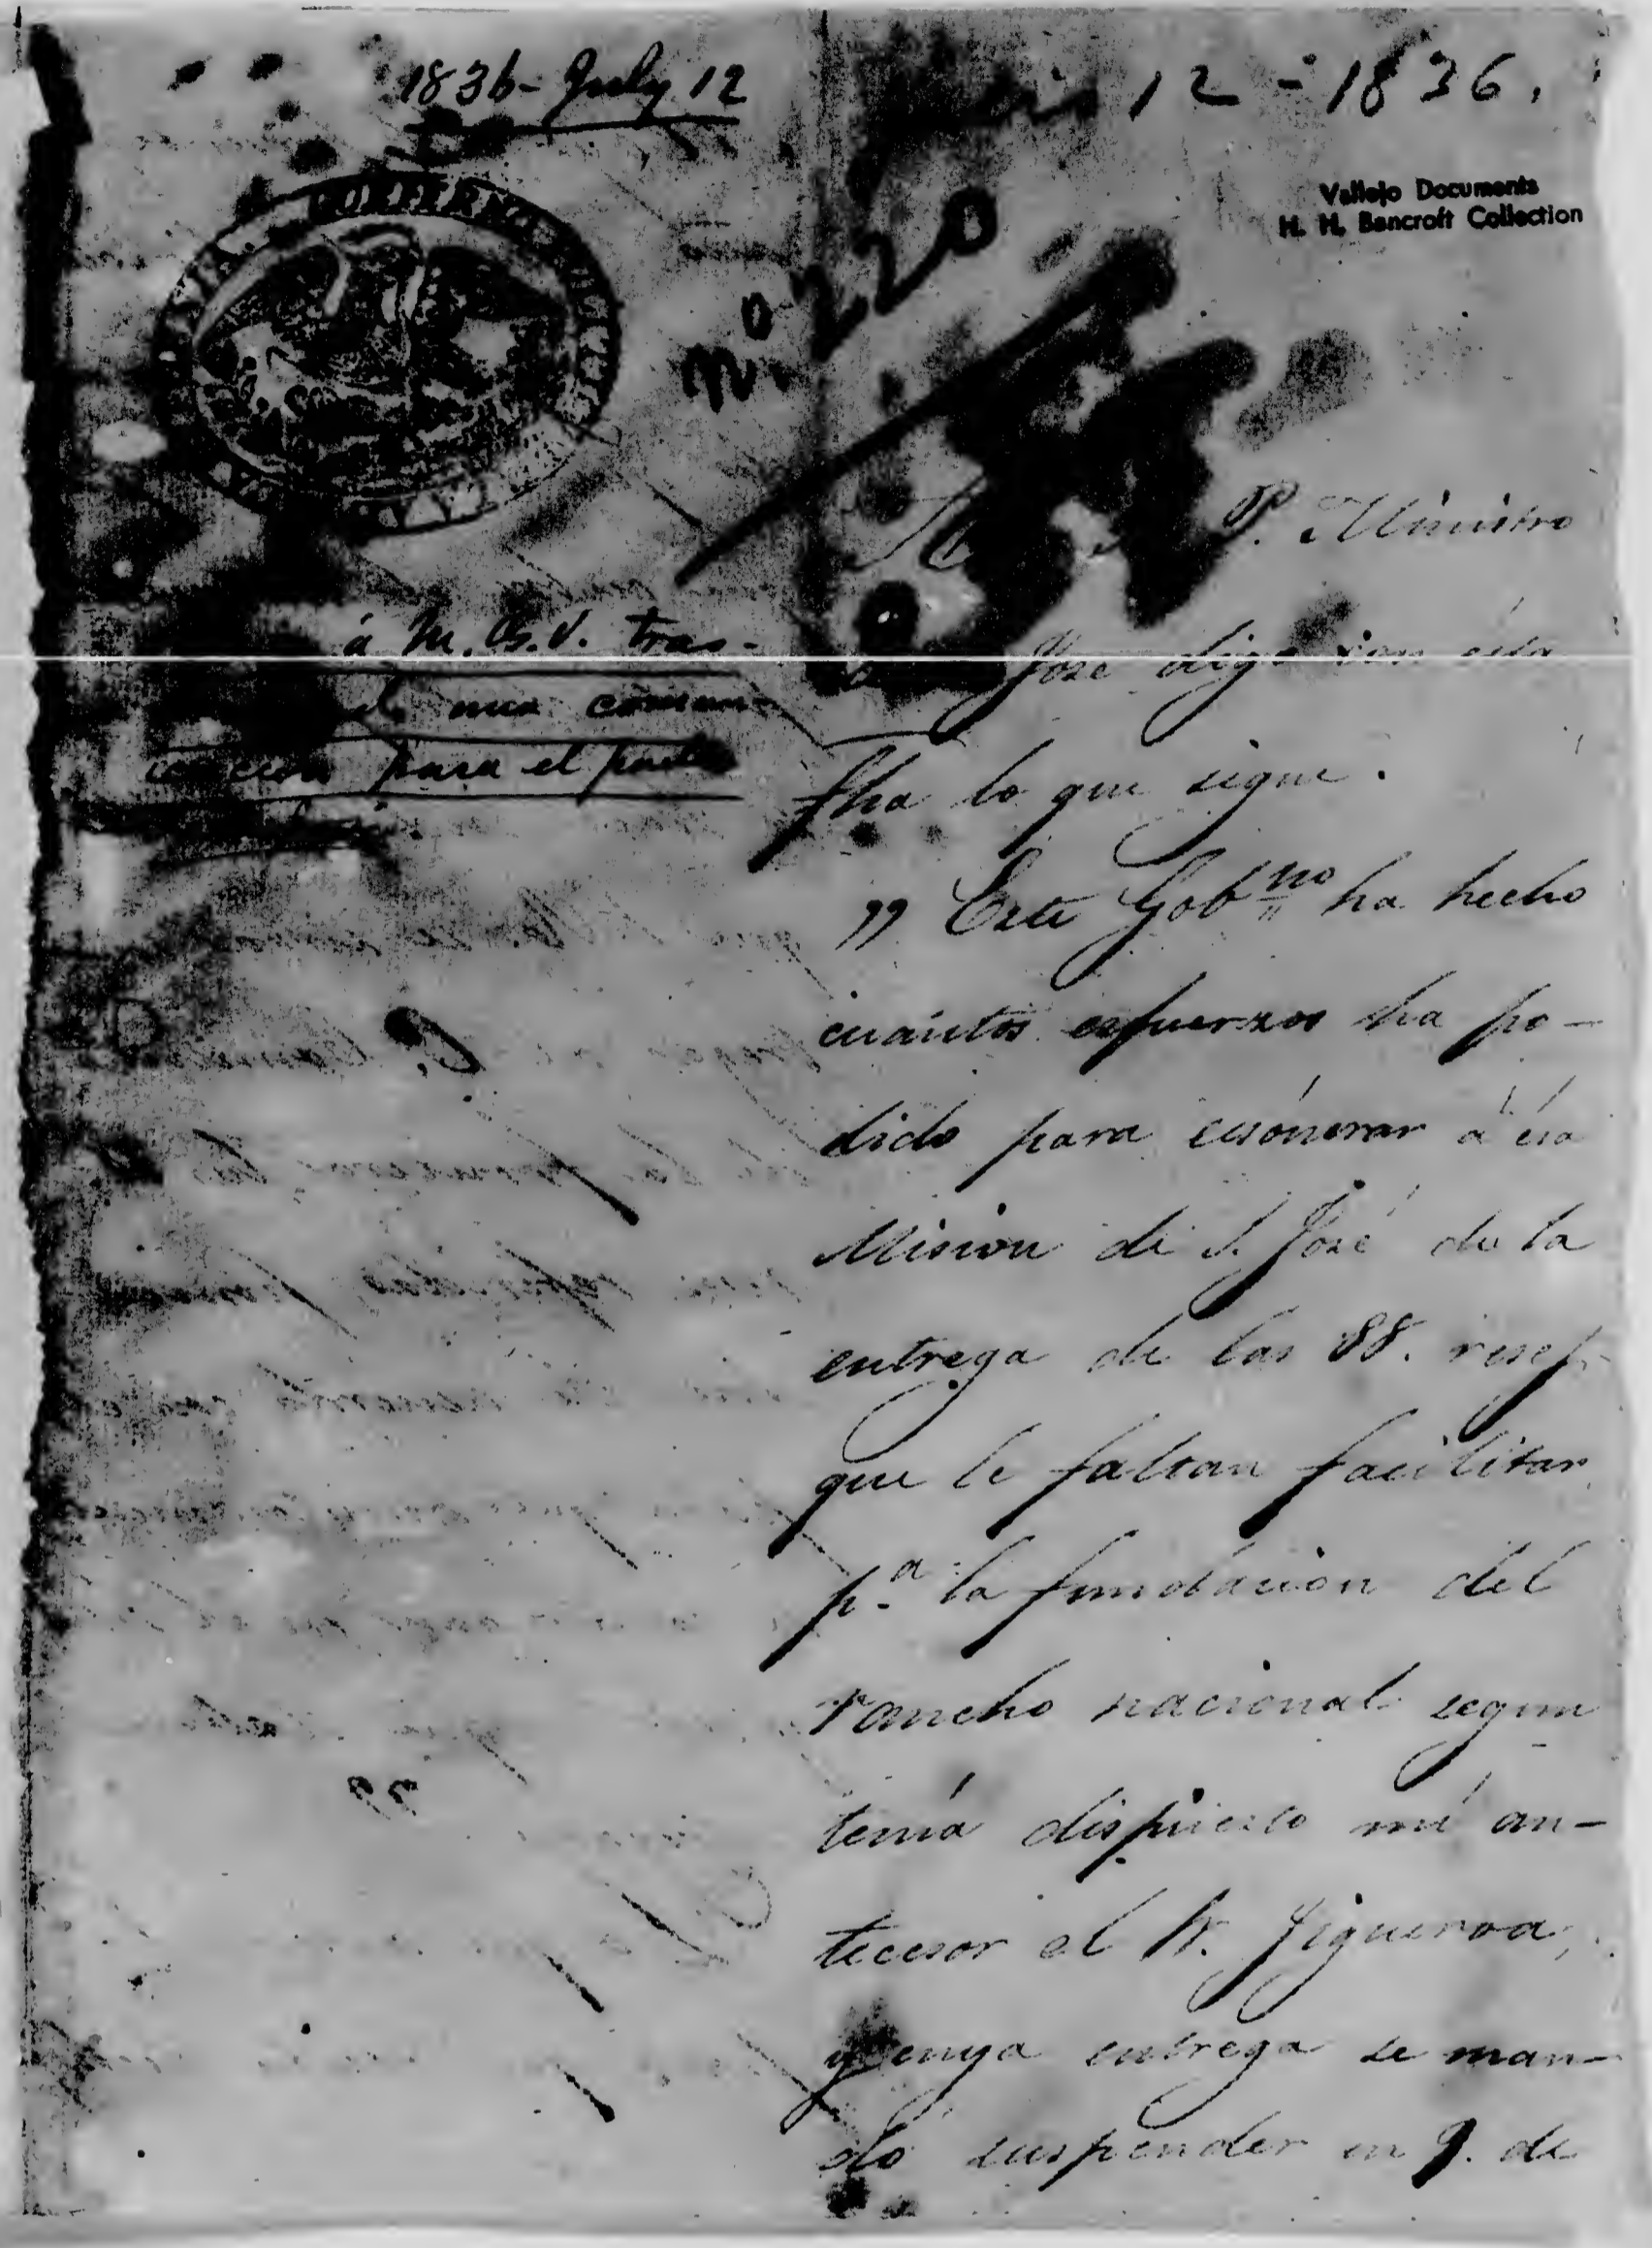 1836 - July 12
12 - 1836.
Vallejo Documents
H. H. Bancroft Collection
Nº 220
P. Ministro
á M. G. V. tras-
José digo con esta
una comuni-
cacion para el padre
fha lo que sigue.
„ Este Gobno ha hecho
cuántos esfuerzos ha po-
dido para esónerar á esa
Mision de S. José de la
entrega de las 88. reses
que le faltan facilitar
pa. la fundacion del
rancho nacional segun
tenía dispuesto mi an-
tecesor el Sr. Figueroa,
y cuya entrega se man-
dó suspender en 9. de